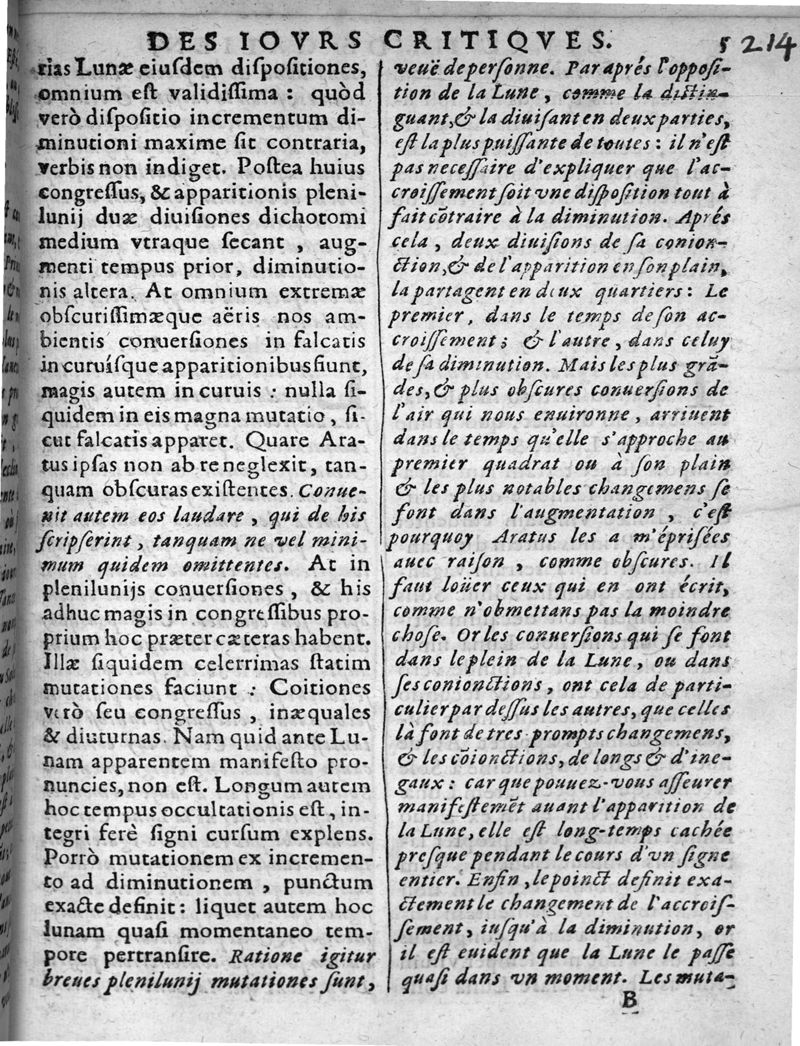 DES IOVRS CRITIQVES. 5 214
rias Lunæ eiuſdem diſpoſitiones,
omnium eſt validiſſima : quòd
verò diſpoſitio incrementum di-
minutioni maxime ſit contraria,
verbis non indiget. Poſtea huius
congreſſus, & apparitionis pleni-
lunij duæ diuiſiones dichotomi
medium vtraque ſecant , aug-
menti tempus prior, diminutio-
nis altera. At omnium extremæ
obſcuriſſimæque aëris nos am-
bientis conuerſiones in falcatis
in curuíſque apparitionibus fiunt,
magis autem in curuis : nulla ſi-
quidem in eis magna mutatio , ſi-
cut falcatis apparet. Quare Ara-
tus ipſas non ab re neglexit, tan-
quam obſcuras exiſtentes. Conue-
nit autem eos laudare , qui de his
ſcripſerint , tanquam ne vel mini-
mum quidem omittentes. At in
plenilunijs conuerſiones , & his
adhuc magis in congreſſibus pro-
prium hoc præter cæteras habent.
Illæ ſiquidem celerrimas ſtatim
mutationes faciunt : Coitiones
verò ſeu congreſſus , inæquales
& diuturnas. Nam quid ante Lu-
nam apparentem manifeſto pro-
nuncies, non eſt. Longum autem
hoc tempus occultationis eſt , in-
tegri ferè ſigni curſum explens.
Porrò mutationem ex incremen-
to ad diminutionem , punctum
exacte definit : liquet autem hoc
lunam quaſi momentaneo tem-
pore pertranſire. Ratione igitur
breues plenilunij mutationes ſunt,
veuë de perſonne. Par aprés l'oppoſi-
tion de la Lune , comme la diſtin-
guant, & la diuiſant en deux parties,
eſt la plus puiſſante de toutes : il n'eſt
pas neceſſaire d'expliquer que l'ac-
croiſſement ſoit vne diſpoſition tout à
fait cõtraire à la diminution. Aprés
cela , deux diuiſions de ſa conion-
ction, & de l'apparition en ſon plain,
la partagent en deux quartiers : Le
premier, dans le temps de ſon ac-
croiſſement ; & l'autre, dans celuy
de ſa diminution. Mais les plus grã-
des, & plus obſcures conuerſions de
l'air qui nous enuironne, arriuent
dans le temps qu'elle s'approche au
premier quadrat ou à ſon plain
& les plus notables changemens ſe
font dans l'augmentation , c'eſt
pourquoy Aratus les a m'épriſées
auec raiſon , comme obſcures. Il
faut loüer ceux qui en ont écrit,
comme n'obmettans pas la moindre
choſe. Or les conuerſions qui ſe font
dans le plein de la Lune, ou dans
ſes conionctions , ont cela de parti-
culier par deſſus les autres, que celles
là font de tres prompts changemens,
& les cõionctions, de longs & d'ine-
gaux : car que pouuez-vous aſſeurer
manifeſtemẽt auant l'apparition de
la Lune, elle eſt long-temps cachée
preſque pendant le cours d'vn ſigne
entier. Enfin , le poinct definit exa-
ctement le changement de l'accroiſ-
ſement, iuſqu'à la diminution, or
il eſt euident que la Lune le paſſe
quaſi dans vn moment. Les muta-
B